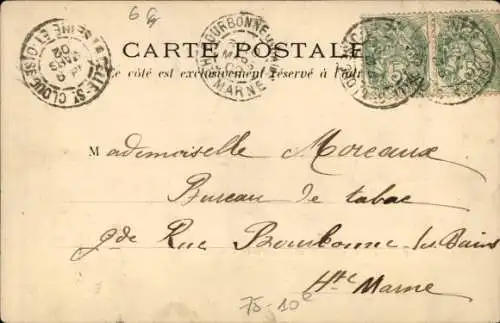 6 G
CARTE POSTALE
Le côté est exclusivement réservé à l'adr
BOURBONNE
Hte MARNE
SEINE ET OISE
ST CLOUD
MARS
02
5
5
Mademoiselle Moreaux
Bureau de tabac
gde Rue Bourbonne-les-Bains
Hte Marne
75-10e